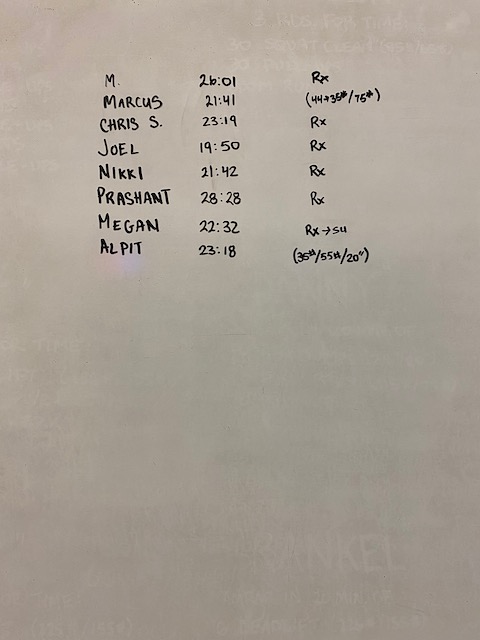 3 RDS FOR TIME
M. 26:01 Rx
MARCUS 21:41 (44→35#/75#)
CHRIS S. 23:19 Rx
JOEL 19:50 Rx
NIKKI 21:42 Rx
PRASHANT 28:28 Rx
MEGAN 22:32 Rx→SU
ALPIT 23:18 (35#/55#/20")